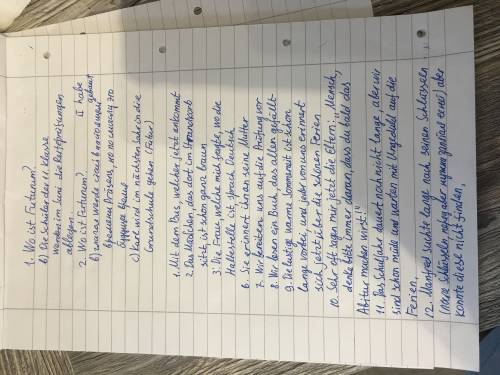 1. Wo ist Futurum?
b) Die Schüler der 11. Klasse
werden im Juni die Reifeprüfungen
ablegen.
2. Wo ist Futurum? II habe
b) глагол werde стоит в настоящем gebaut
времени Präsens, но по смыслу это
будущее время
c) Kurt wird im nächsten Jahr in die
Grundschule gehen (Futur)
1. Mit dem Bus, welcher jetzt ankommt
2. Das Mädchen, das dort im Strandkorb
sitzt, ist schon ganz braun
3. Die Frau, welche mich fragte, wo die
Haltestelle ist, sprach Deutsch
6. Sie erinnert ihnen seine Mutter
7. Wir bereiten uns auf die Prüfung vor
8. Wir lesen ein Buch, das allen gefällt
9. Die lustige warme Sommerzeit ist schon
lange vorbei, und jeder von uns erinnert
sich jetzt über die schönen Ferien
10. Sehr oft sagen mir jetzt die Eltern: "Mensch,
denke bitte immer daran, dass du bald das
Abitur machen wirst!"
11. Das Schuljahr dauert noch nicht lange, aber wir
sind schon müde und warten mit Ungeduld auf die
Ferien.
12. Manfred suchte lange nach seinen Schlüsseln
aber
konnte diese nicht finden,